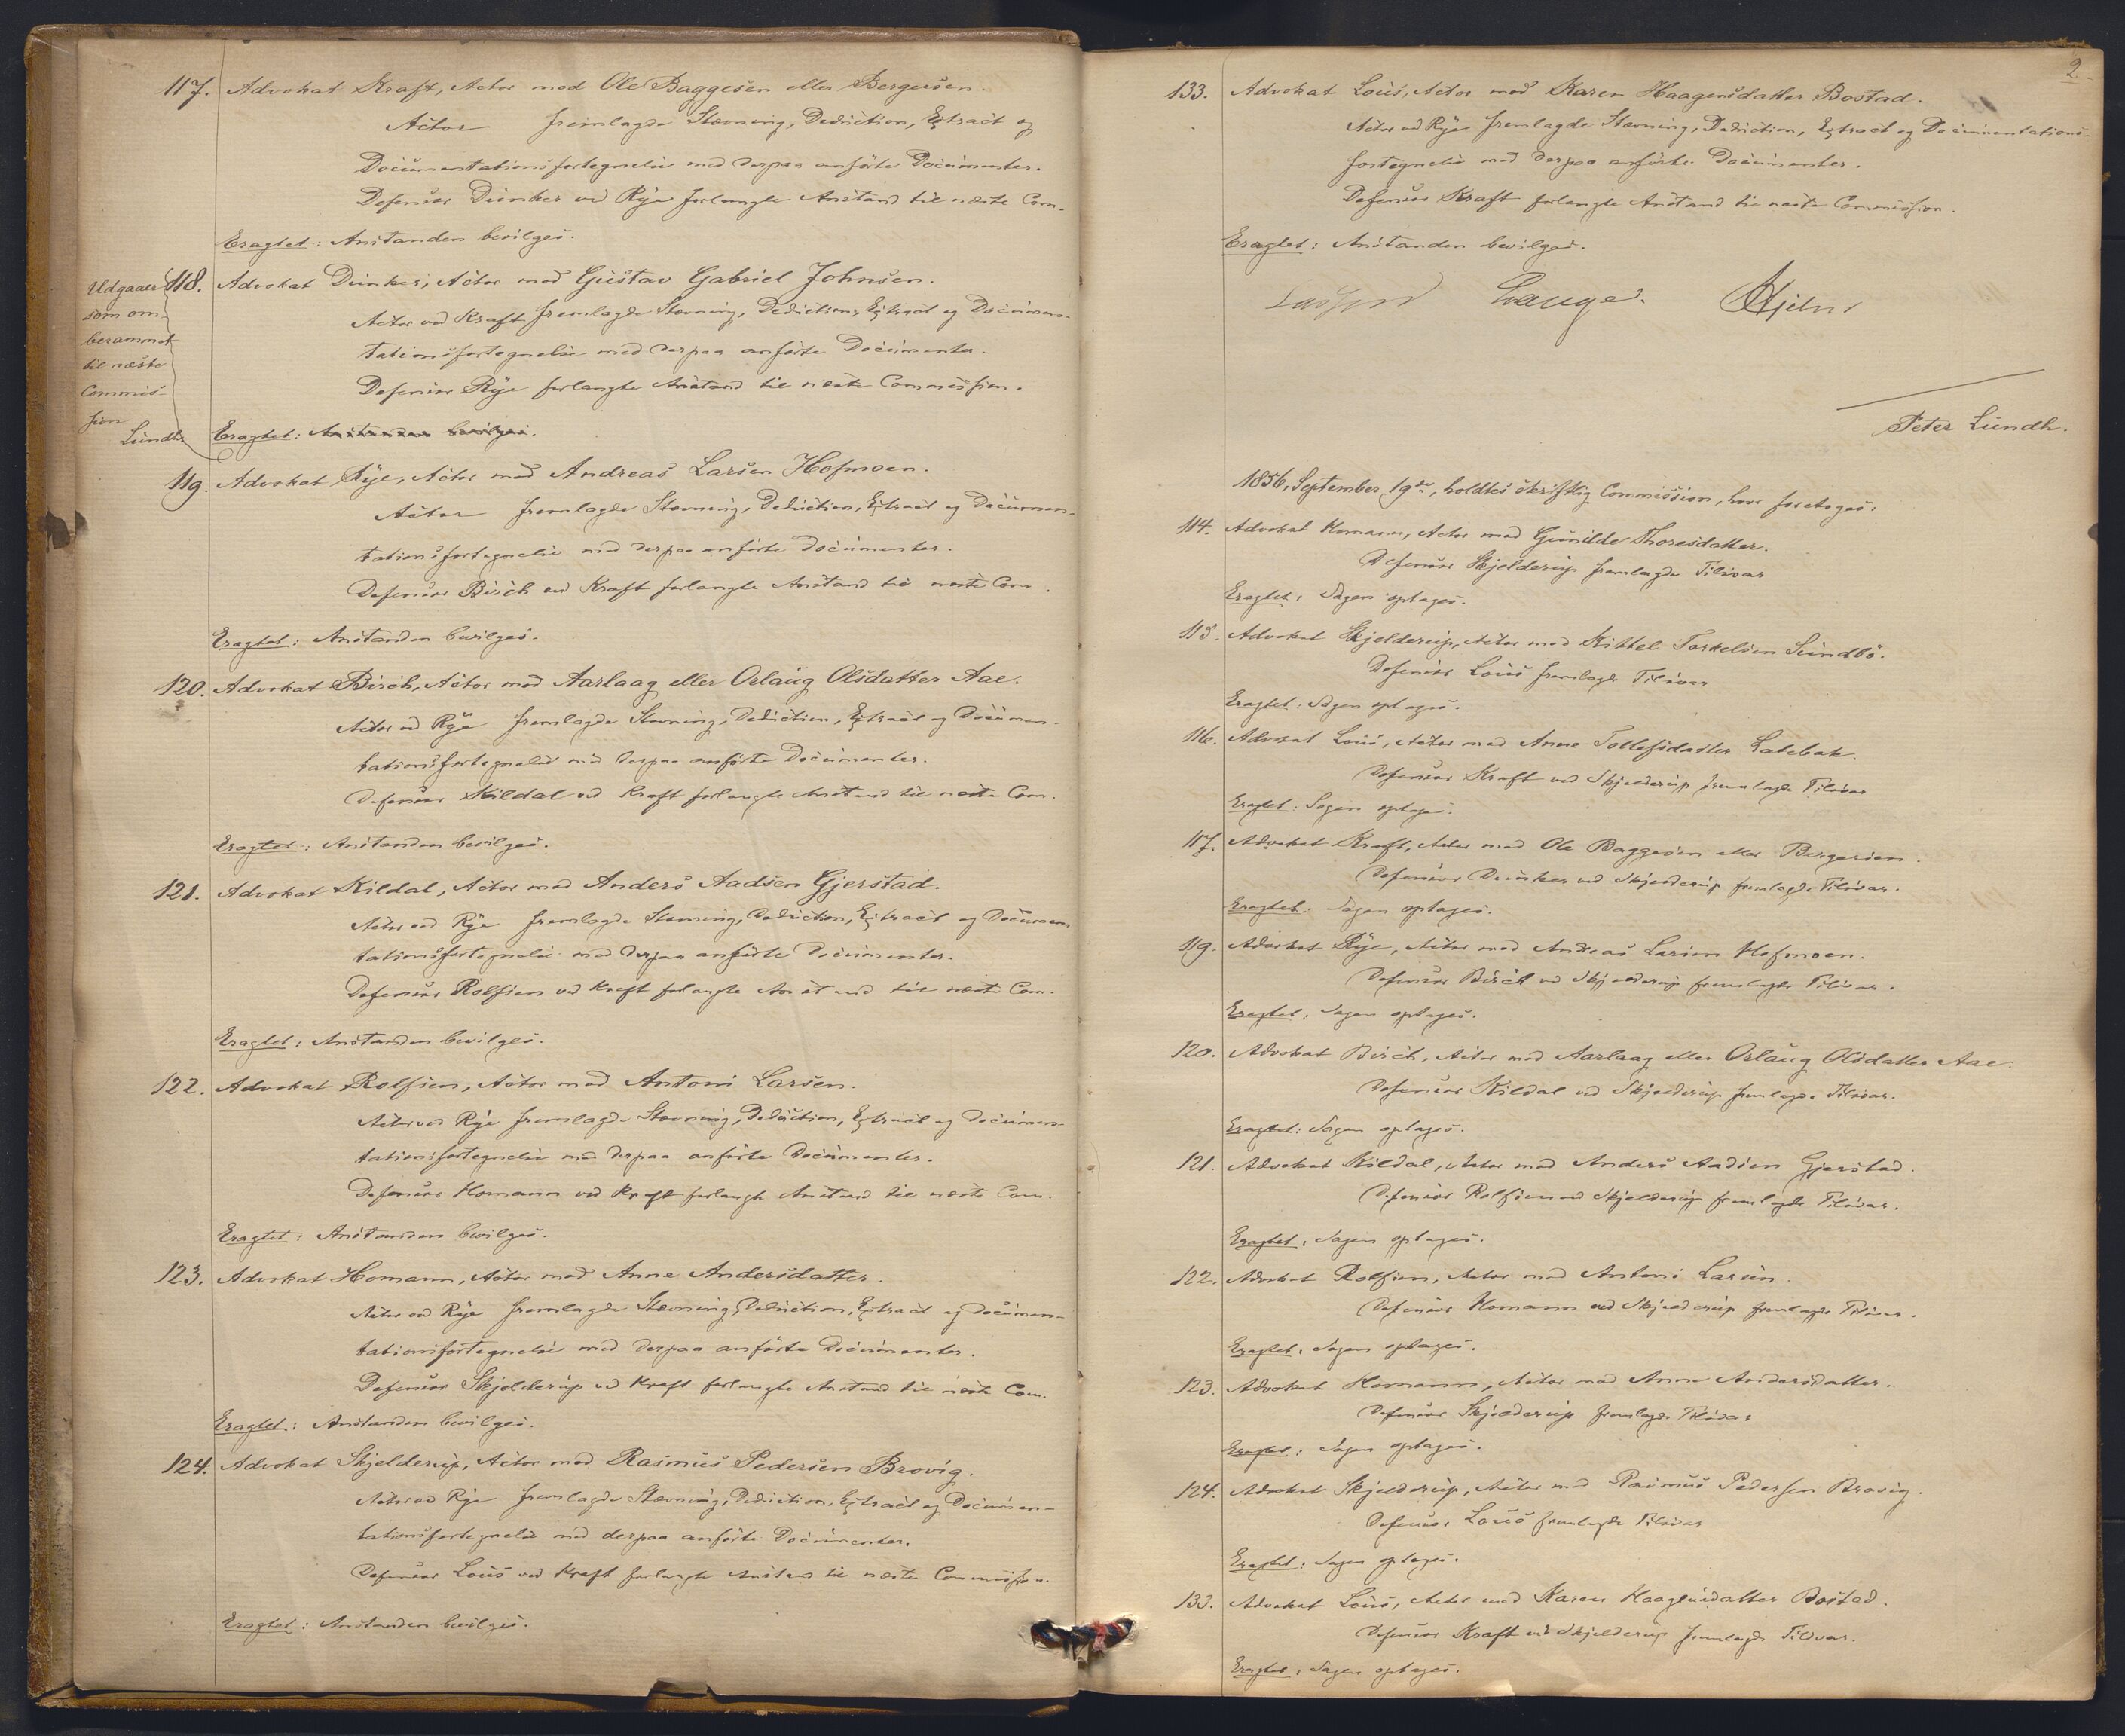 117. Advokat Kraft, Actor mod Ole Baggesen eller Bergersen.
Actor fremlagde Stævning, Deduction, Extract og
Documentationsfortegnelse med derpaa anførte Documenter.
Defensor Dunker ved Rye forlangte Anstand til næste Com.
Eragtet: Anstanden bevilges.
118. Advokat Dunker, Actor mod Gustav Gabriel Johnsen.
Actor ved Kraft fremlagde Stævning, Deduction, Extract og Documen-
tationsfortegnelse med derpaa anførte Documenter.
Defensor Rye forlangte Anstand til næste Commission.
Eragtet: Anstanden bevilges.
Udgaaer
som om-
berammet
til næste
Commis-
sion
Lundh
119. Advokat Rye, Actor mod Andreas Larsen Hofmoen.
Actor fremlagde Stævning, Deduction, Extract og Documen-
tationsfortegnelse med derpaa anførte Documenter.
Defensor Birch ved Kraft forlangte Anstand til næste Com.
Eragtet: Anstanden bevilges.
120. Advokat Birch, Actor mod Aarlaag eller Orlaug Olsdatter Aae.
Actor ved Rye fremlagde Stævning, Deduction, Extract og Documen-
tationsfortegnelse med derpaa anførte Documenter.
Defensor Kildal ved Kraft forlangte Anstand til næste Com.
Eragtet: Anstanden bevilges.
121. Advokat Kildal, Actor mod Anders Aadsen Gjerstad.
Actor ved Rye fremlagde Stævning, Deduction, Extract og Documen
tationsfortegnelse med derpaa anførte Documenter.
Defensor Rolfsen ved Kraft forlangte Anstand til næste Com.
Eragtet: Anstanden bevilges.
122. Advokat Rolfsen, Actor mod Antoni Larsen.
Actor ved Rye fremlagde Stævning, Deduction, Extract og Documen-
tationsfortegnelse med derpaa anførte Documenter.
Defensor Homann ved Kraft forlangte Anstand til næste Com.
Eragtet: Anstanden bevilges.
123. Advokat Homann, Actor mod Anne Andersdatter.
Actor ved Rye fremlagde Stævning, Deduction, Extract og Documen-
tationsfortegnelse med derpaa anførte Documenter.
Defensor Skjelderup ved Kraft forlangte Anstand til næste Com.
Eragtet: Anstanden bevilges.
124. Advokat Skjelderup, Actor mod Rasmus Pedersen Brovig.
Actor ved Rye fremlagde Stævning, Deduction, Extract og Documen-
tationsfortegnelse med derpaa anførte Documenter.
Defensor Lous ved Kraft forlangte Anstand til næste Commission.
Eragtet: Anstanden bevilges.
2.
133. Advokat Lous, Actor mod Karen Haagensdatter Bostad.
Actor ved Rye fremlagde Stævning, Deduction, Extract og Documentations-
fortegnelse med derpaa anførte Documenter.
Defensor Kraft forlangte Anstand til næste Commission.
Eragtet: Anstanden bevilges.
Lange. Hjelm
Peter Lundh.
1856, September 19de, holdtes skriftlig Commission, hvor foretoges:
114. Advokat Homann, Actor mod Gunilde Thoresdatter.
Defensor Skjelderup fremlagde Tilsvar
Eragtet: Sagen optages.
115. Advokat Skjelderup, Actor mod Kittel Torkelsen Sundbö.
Defensor Lous fremlagde Tilsvar
Eragtet: Sagen optages.
116. Advokat Lous, Actor mod Anne Tollefsdatter Latebak.
Defensor Kraft ved Skjelderup fremlagde Tilsvar
Eragtet: Sagen optages.
117. Advokat Kraft, Actor mod Ole Baggesen eller Bergersen.
Defensor Dunker ved Skjelderup fremlagde Tilsvar.
Eragtet: Sagen optages.
119. Advokat Rye, Actor mod Andreas Larsen Hofmoen.
Defensor Birch ved Skjelderup fremlagde Tilsvar.
Eragtet: Sagen optages.
120. Advokat Birch, Actor mod Aarlaag eller Orlaug Olsdatter Aae.
Defensor Kildal ved Skjelderup fremlagde Tilsvar.
Eragtet: Sagen optages.
121. Advokat Kildal, Actor mod Anders Aadsen Gjerstad.
Defensor Rolfsen ved Skjelderup fremlagde Tilsvar.
Eragtet: Sagen optages.
122. Advokat Rolfsen, Actor mod Antoni Larsen.
Defensor Homann ved Skjelderup fremlagde Tilsvar.
Eragtet: Sagen optages.
123. Advokat Homann, Actor mod Anne Andersdatter.
Defensor Skjelderup fremlagde Tilsvar
Eragtet: Sagen optages.
124. Advokat Skjelderup, Actor mod Rasmus Pedersen Brovig.
Defensor Lous fremlagde Tilsvar
Eragtet: Sagen optages.
133. Advokat Lous, Actor mod Karen Haagensdatter Bostad.
Defensor Kraft ved Skjelderup fremlagde Tilsvar.
Eragtet: Sagen optages.